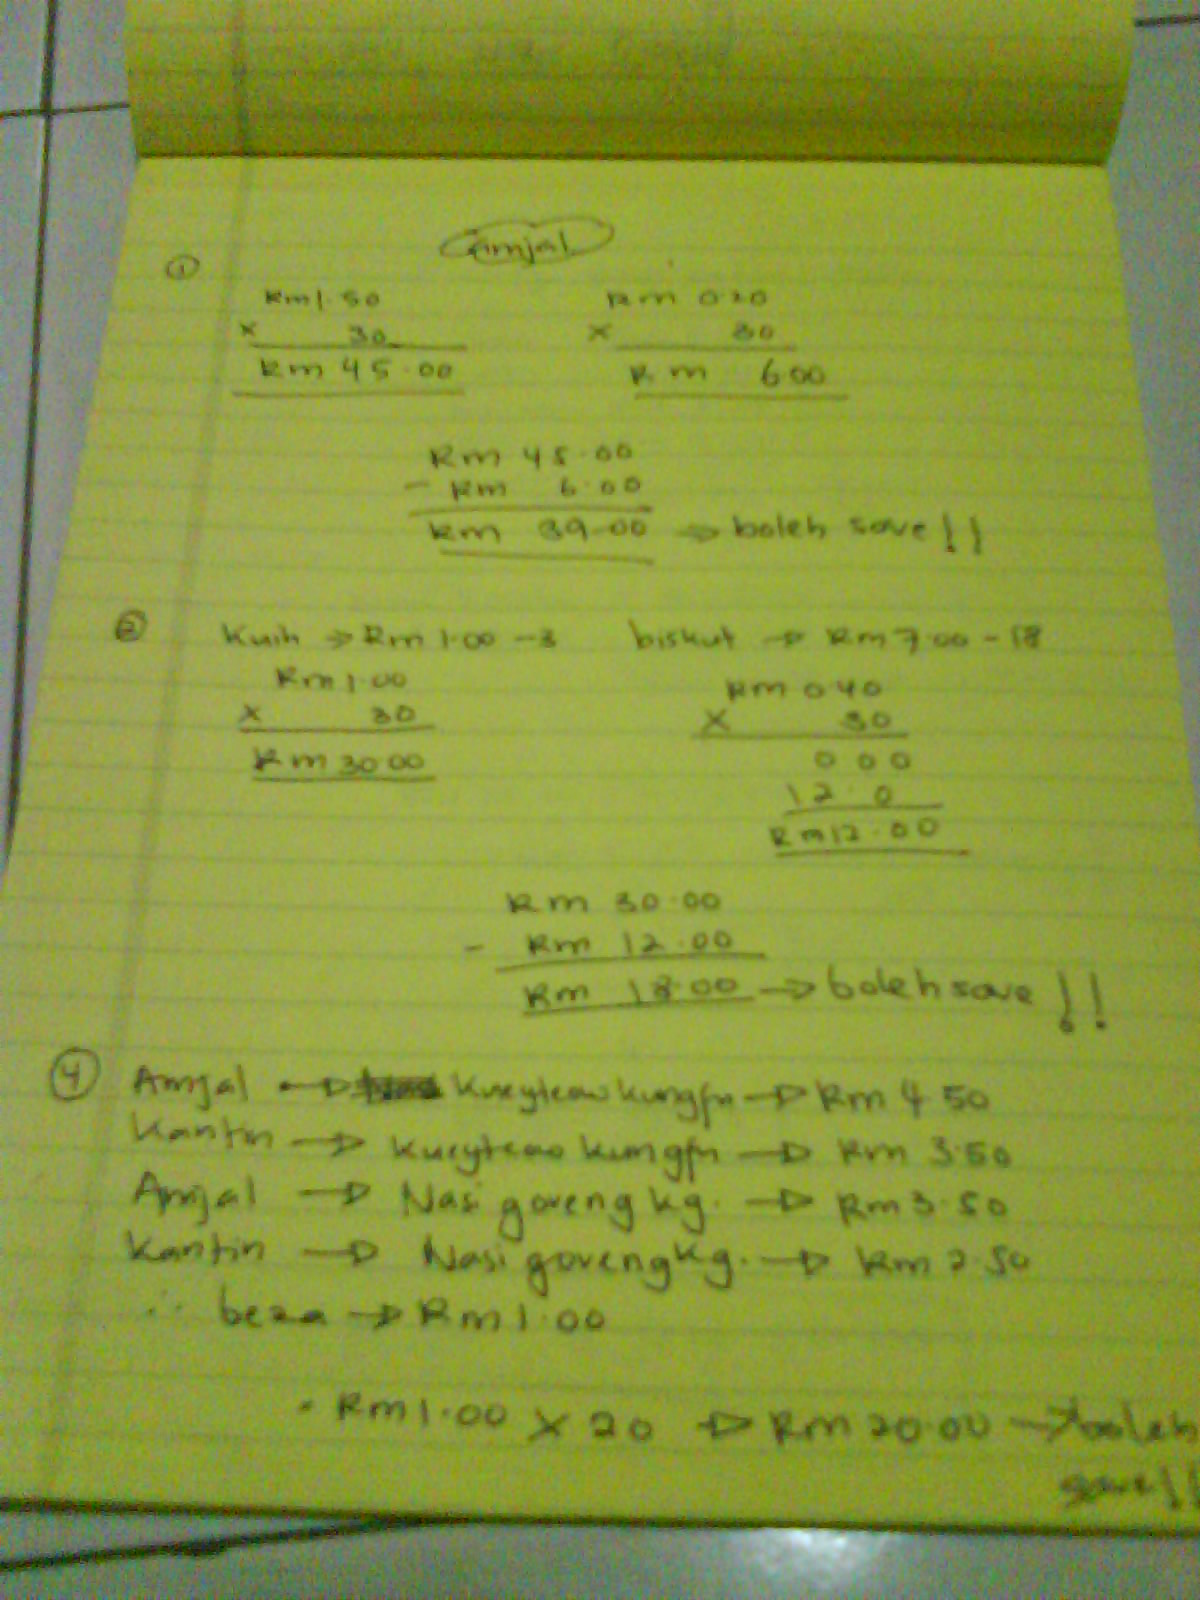 Amjal
①
Rm 1.50    Rm 0.20
x 30    x 30
Rm 45.00    Rm 6.00
Rm 45.00
- Rm 6.00
Rm 39.00 → boleh save!!
②
Kuih → Rm 1.00 - 3    biskut → Rm 7.00 - 18
Rm 1.00    Rm 0.40
x 30    x 30
Rm 30.00    0 00
12.0
Rm 12.00
Rm 30.00
- Rm 12.00
Rm 18.00 → boleh save!!
④ Amjal → kueyteow kungfu → Rm 4.50
Kantin → kueyteow kungfu → Rm 3.50
Amjal → Nasi goreng kg. → Rm 3.50
Kantin → Nasi goreng kg. → Rm 2.50
∴ beza → Rm 1.00
• Rm 1.00 x 20 → Rm 20.00 → boleh
save!!